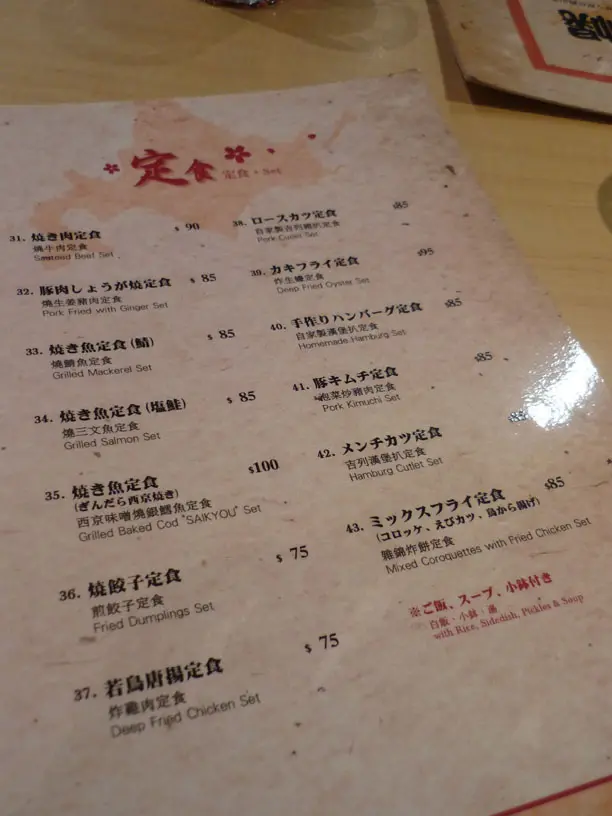 定食 定食・Set
31. 焼き肉定食 $ 90
燒牛肉定食
Sauteed Beef Set
32. 豚肉しょうが焼定食 $ 85
燒生姜豬肉定食
Pork Fried with Ginger Set
33. 焼き魚定食(鯖) $ 85
燒鯖魚定食
Grilled Mackerel Set
34. 焼き魚定食(塩鮭) $ 85
燒三文魚定食
Grilled Salmon Set
35. 焼き魚定食 $100
(ぎんだら西京焼き)
西京味噌燒銀鱈魚定食
Grilled Baked Cod "SAIKYOU" Set
36. 焼餃子定食 $ 75
煎餃子定食
Fried Dumplings Set
37. 若鳥唐揚定食 $ 75
炸雞肉定食
Deep Fried Chicken Set
38. ロースカツ定食 $85
自家製吉列豬扒定食
Pork Cutlet Set
39. カキフライ定食 $95
炸生蠔定食
Deep Fried Oyster Set
40. 手作りハンバーグ定食 $85
自家製漢堡扒定食
Homemade Hamburg Set
41. 豚キムチ定食 $85
泡菜炒豬肉定食
Pork Kimuchi Set
42. メンチカツ定食
吉列漢堡扒定食
Hamburg Cutlet Set
43. ミックスフライ定食 $85
(コロッケ、えびカツ、鳥から揚げ)
雜錦炸餅定食
Mixed Coroquettes with Fried Chicken Set
※ご飯、スープ、小鉢付き
白飯・小鉢・湯
with Rice, Sidedish, Pickles & Soup